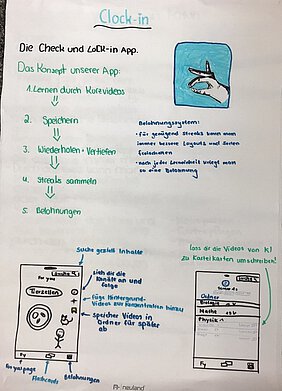 Clock-in
Die Check und LoCK-in App.
Das Konzept unserer App:
1. Lernen durch Kurzvideos
2. Speichern
3. Wiederholen + Vertiefen
4. Streaks sammeln
5. Belohnungen
Belohnungssystem:
• für genügend Streaks kann man
immer bessere Layouts und Serien
freischalten
• nach jeder Lerneinheit kriegt man
so eine Belohnung
Suche gezielt Inhalte
For you
Suche
Tierzellen
sieh dir die
Kanäle an und
folge
füge Hintergrund-
Videos zur Konzentration hinzu
speicher Videos in
Ordner für später
ab
Fy
Foryoupage
Belohnungen
lass dir die Videos von KI
zu Karteikarten umschreiben!
Suche
Ordner
Biologie
Mathe
Physik
Fy
neuland